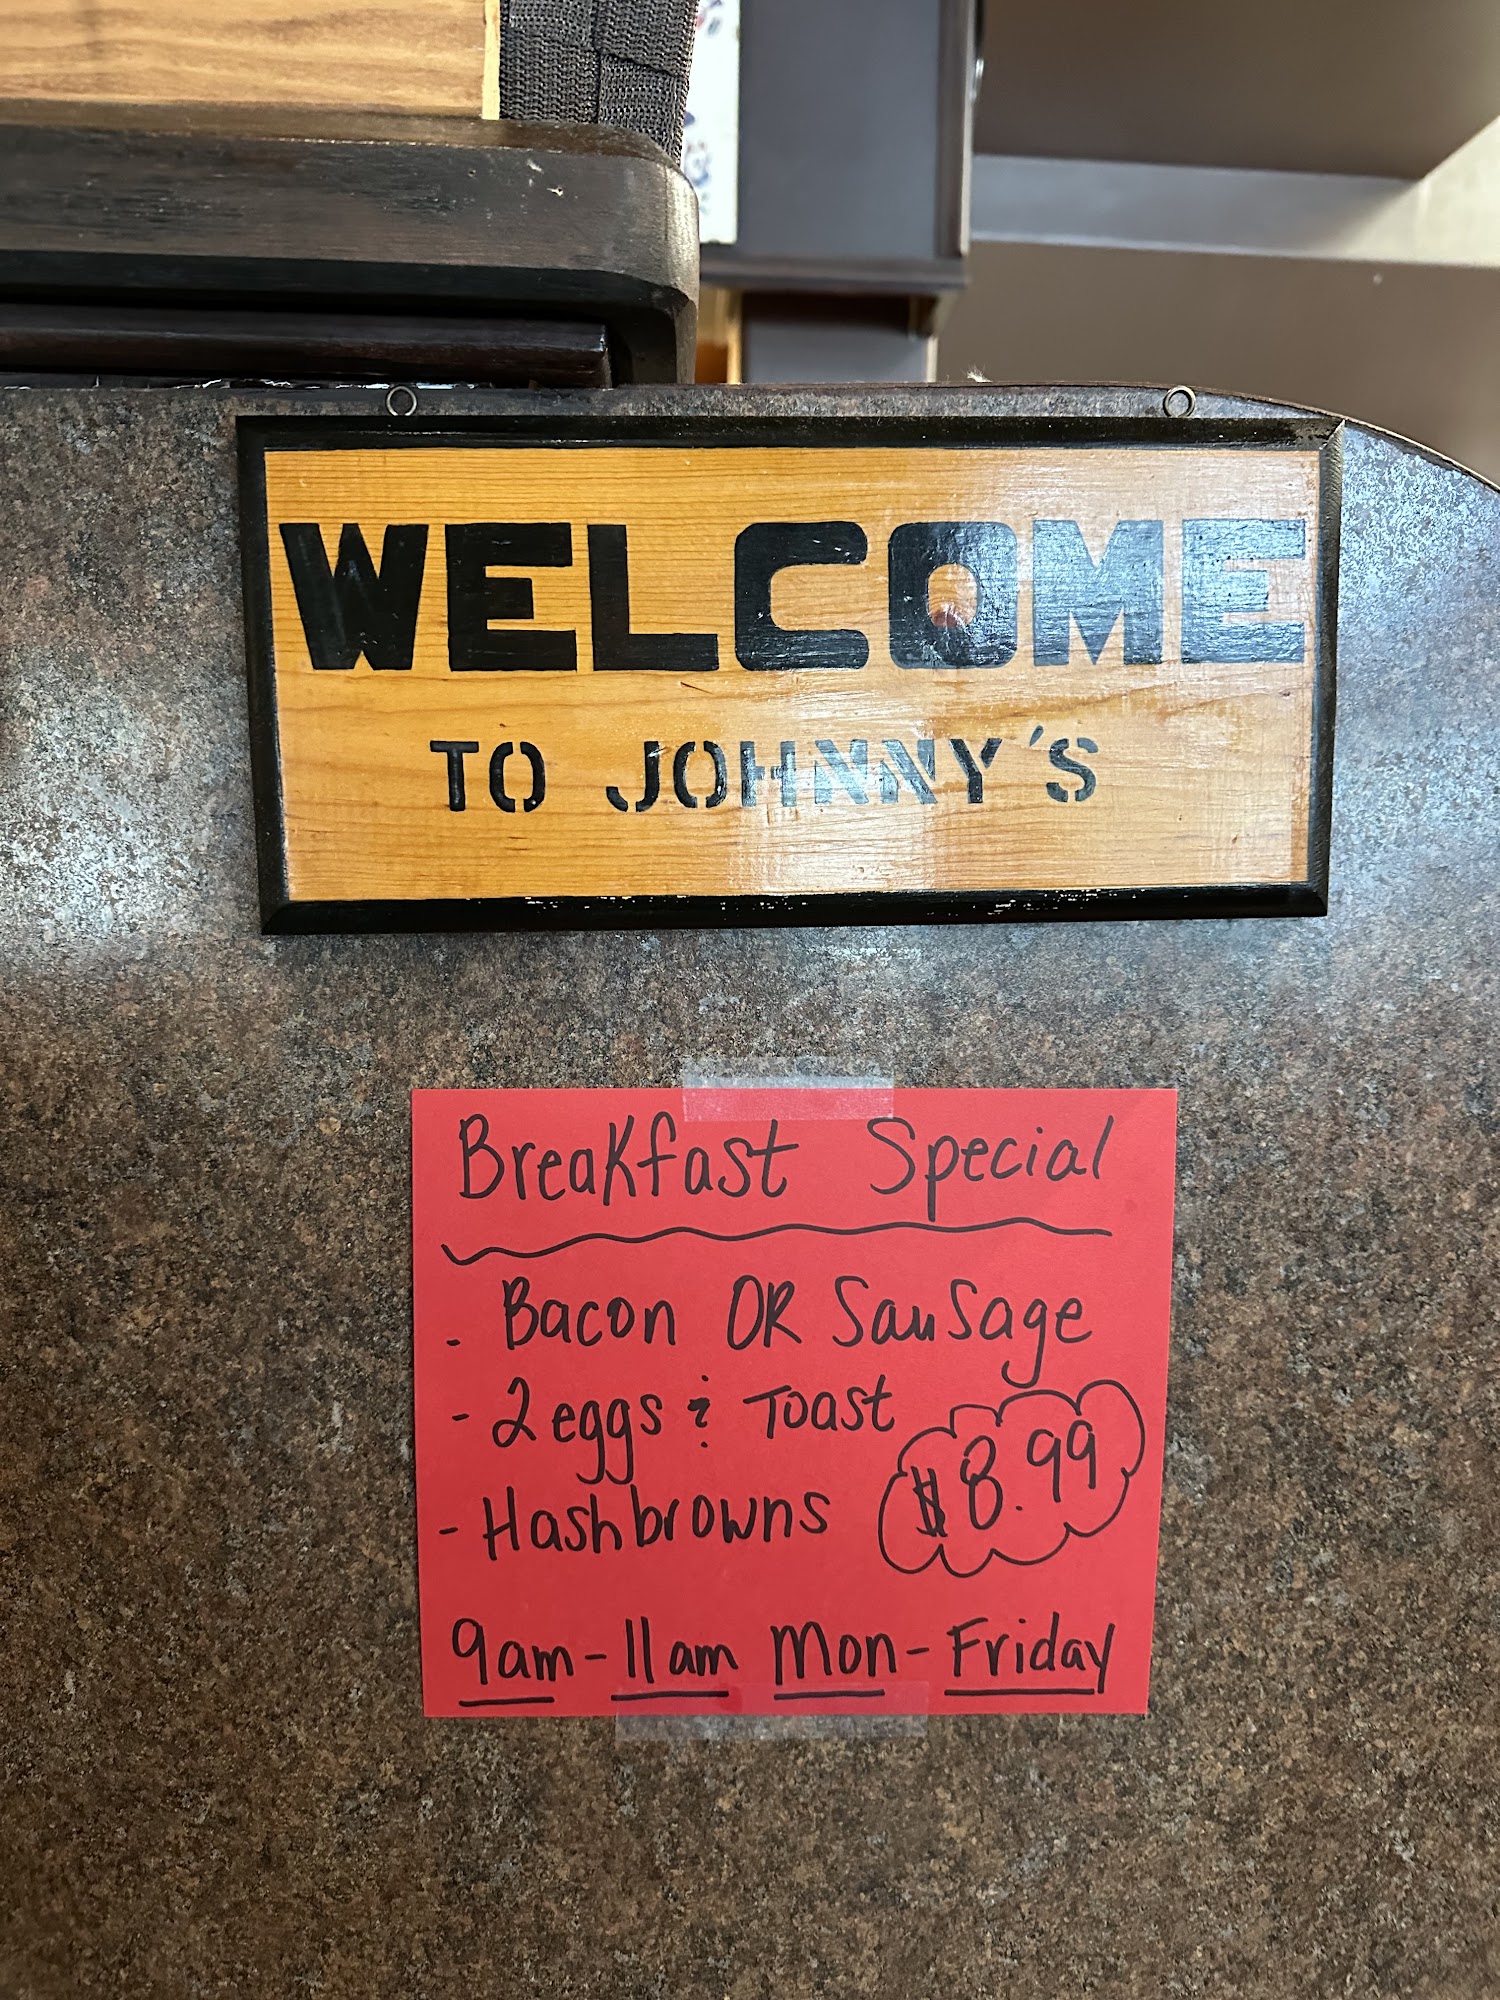 WELCOME
TO JOHNNY'S
Breakfast Special
- Bacon OR Sausage
- 2 eggs & Toast
$8.99
- Hashbrowns
9am - 11am Mon - Friday